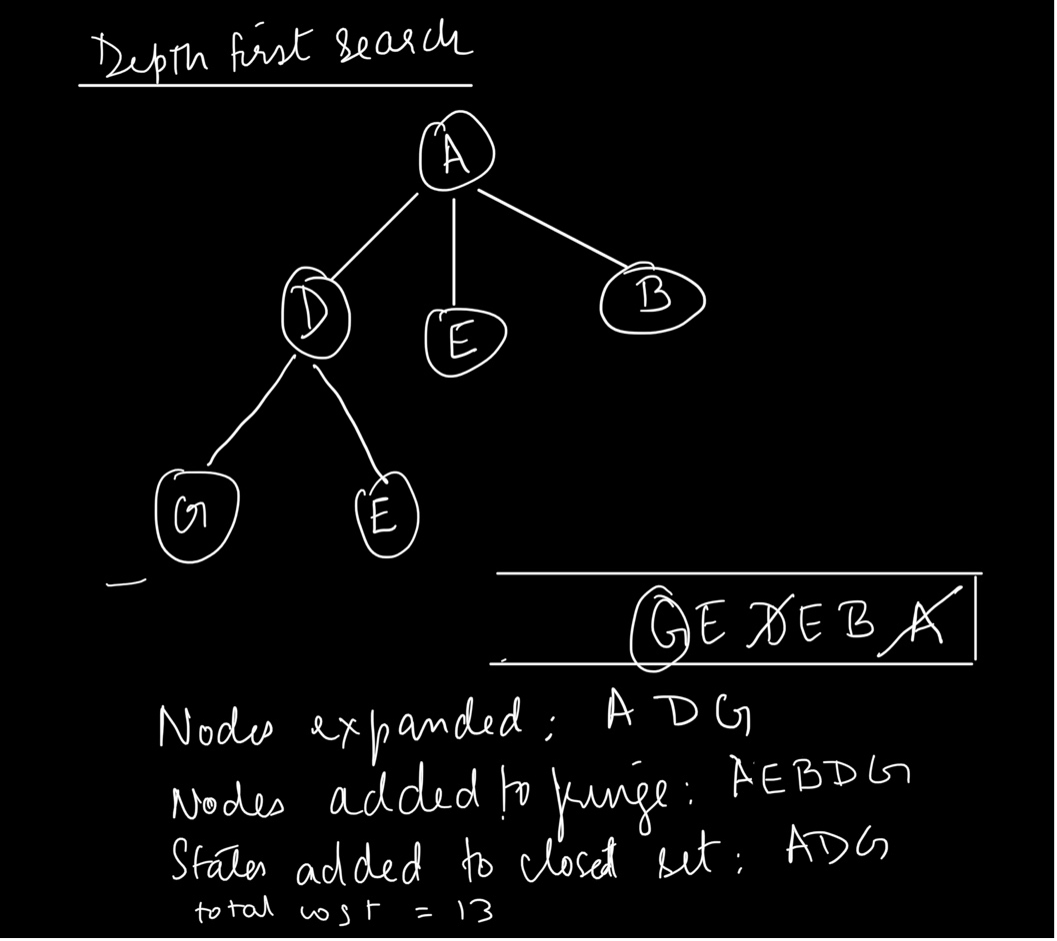 Depth first search
A
D E B
G E
G E D E B A
Nodes expanded : A D G
Nodes added to fringe : A E B D G
States added to closed set : A D G
total cost = 13